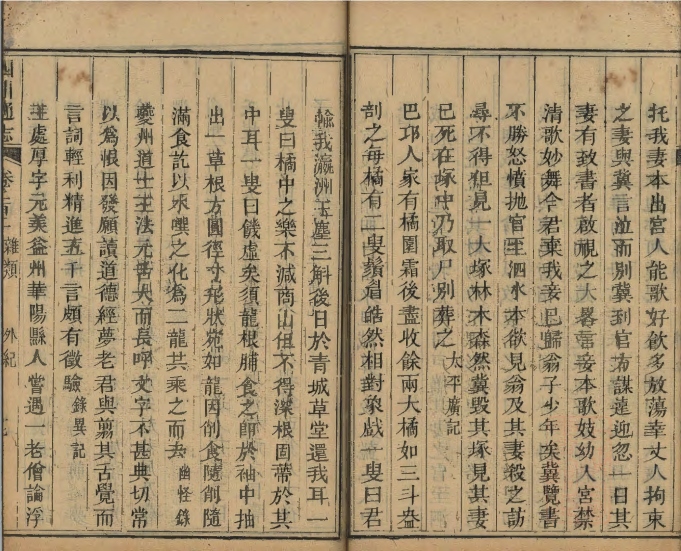 托我妻本出宮人能歌好飲多放蕩幸丈人拘束
之妻與冀言泣而別冀到官方謀蓮迎忽一日其
妻有致書者啟視之大畧言妾本歌妓幼入宮禁
清歌妙舞令君棄我妾已歸翁子少年矣冀覽書
不勝怒憤拋官至泗水本欲見翁及其妻殺之訪
尋不得但見一大塚林木森然冀毀其塚見其妻
已死在塚中乃取尸別葬之太平廣記
巴邛人家有橘園霜後盡收餘兩大橘如三斗盎
剖之每橘有二叟鬚眉皓然相對象戲一叟曰君
輸我瀛洲玉塵三斛後日於青城草堂還我耳一
叟曰橘中之樂不減商山但不得深根固蒂於其
中耳一叟曰饑虛矣須龍根脯食之卽於袖中抽
出一草根方圓徑寸形狀宛如龍因削食隨削隨
滿食訖以水噀之化為二龍共乘之而去幽怪錄
夔州道士王法元舌大而長呼文字不甚典切常
以為恨因發願讀道德經夢老君與剪其舌覺而
言詞輕利精進五千言頗有徵驗錄異記
王處厚字元美益州華陽縣人嘗遇一老僧論浮
通志 卷 雜類 外紀